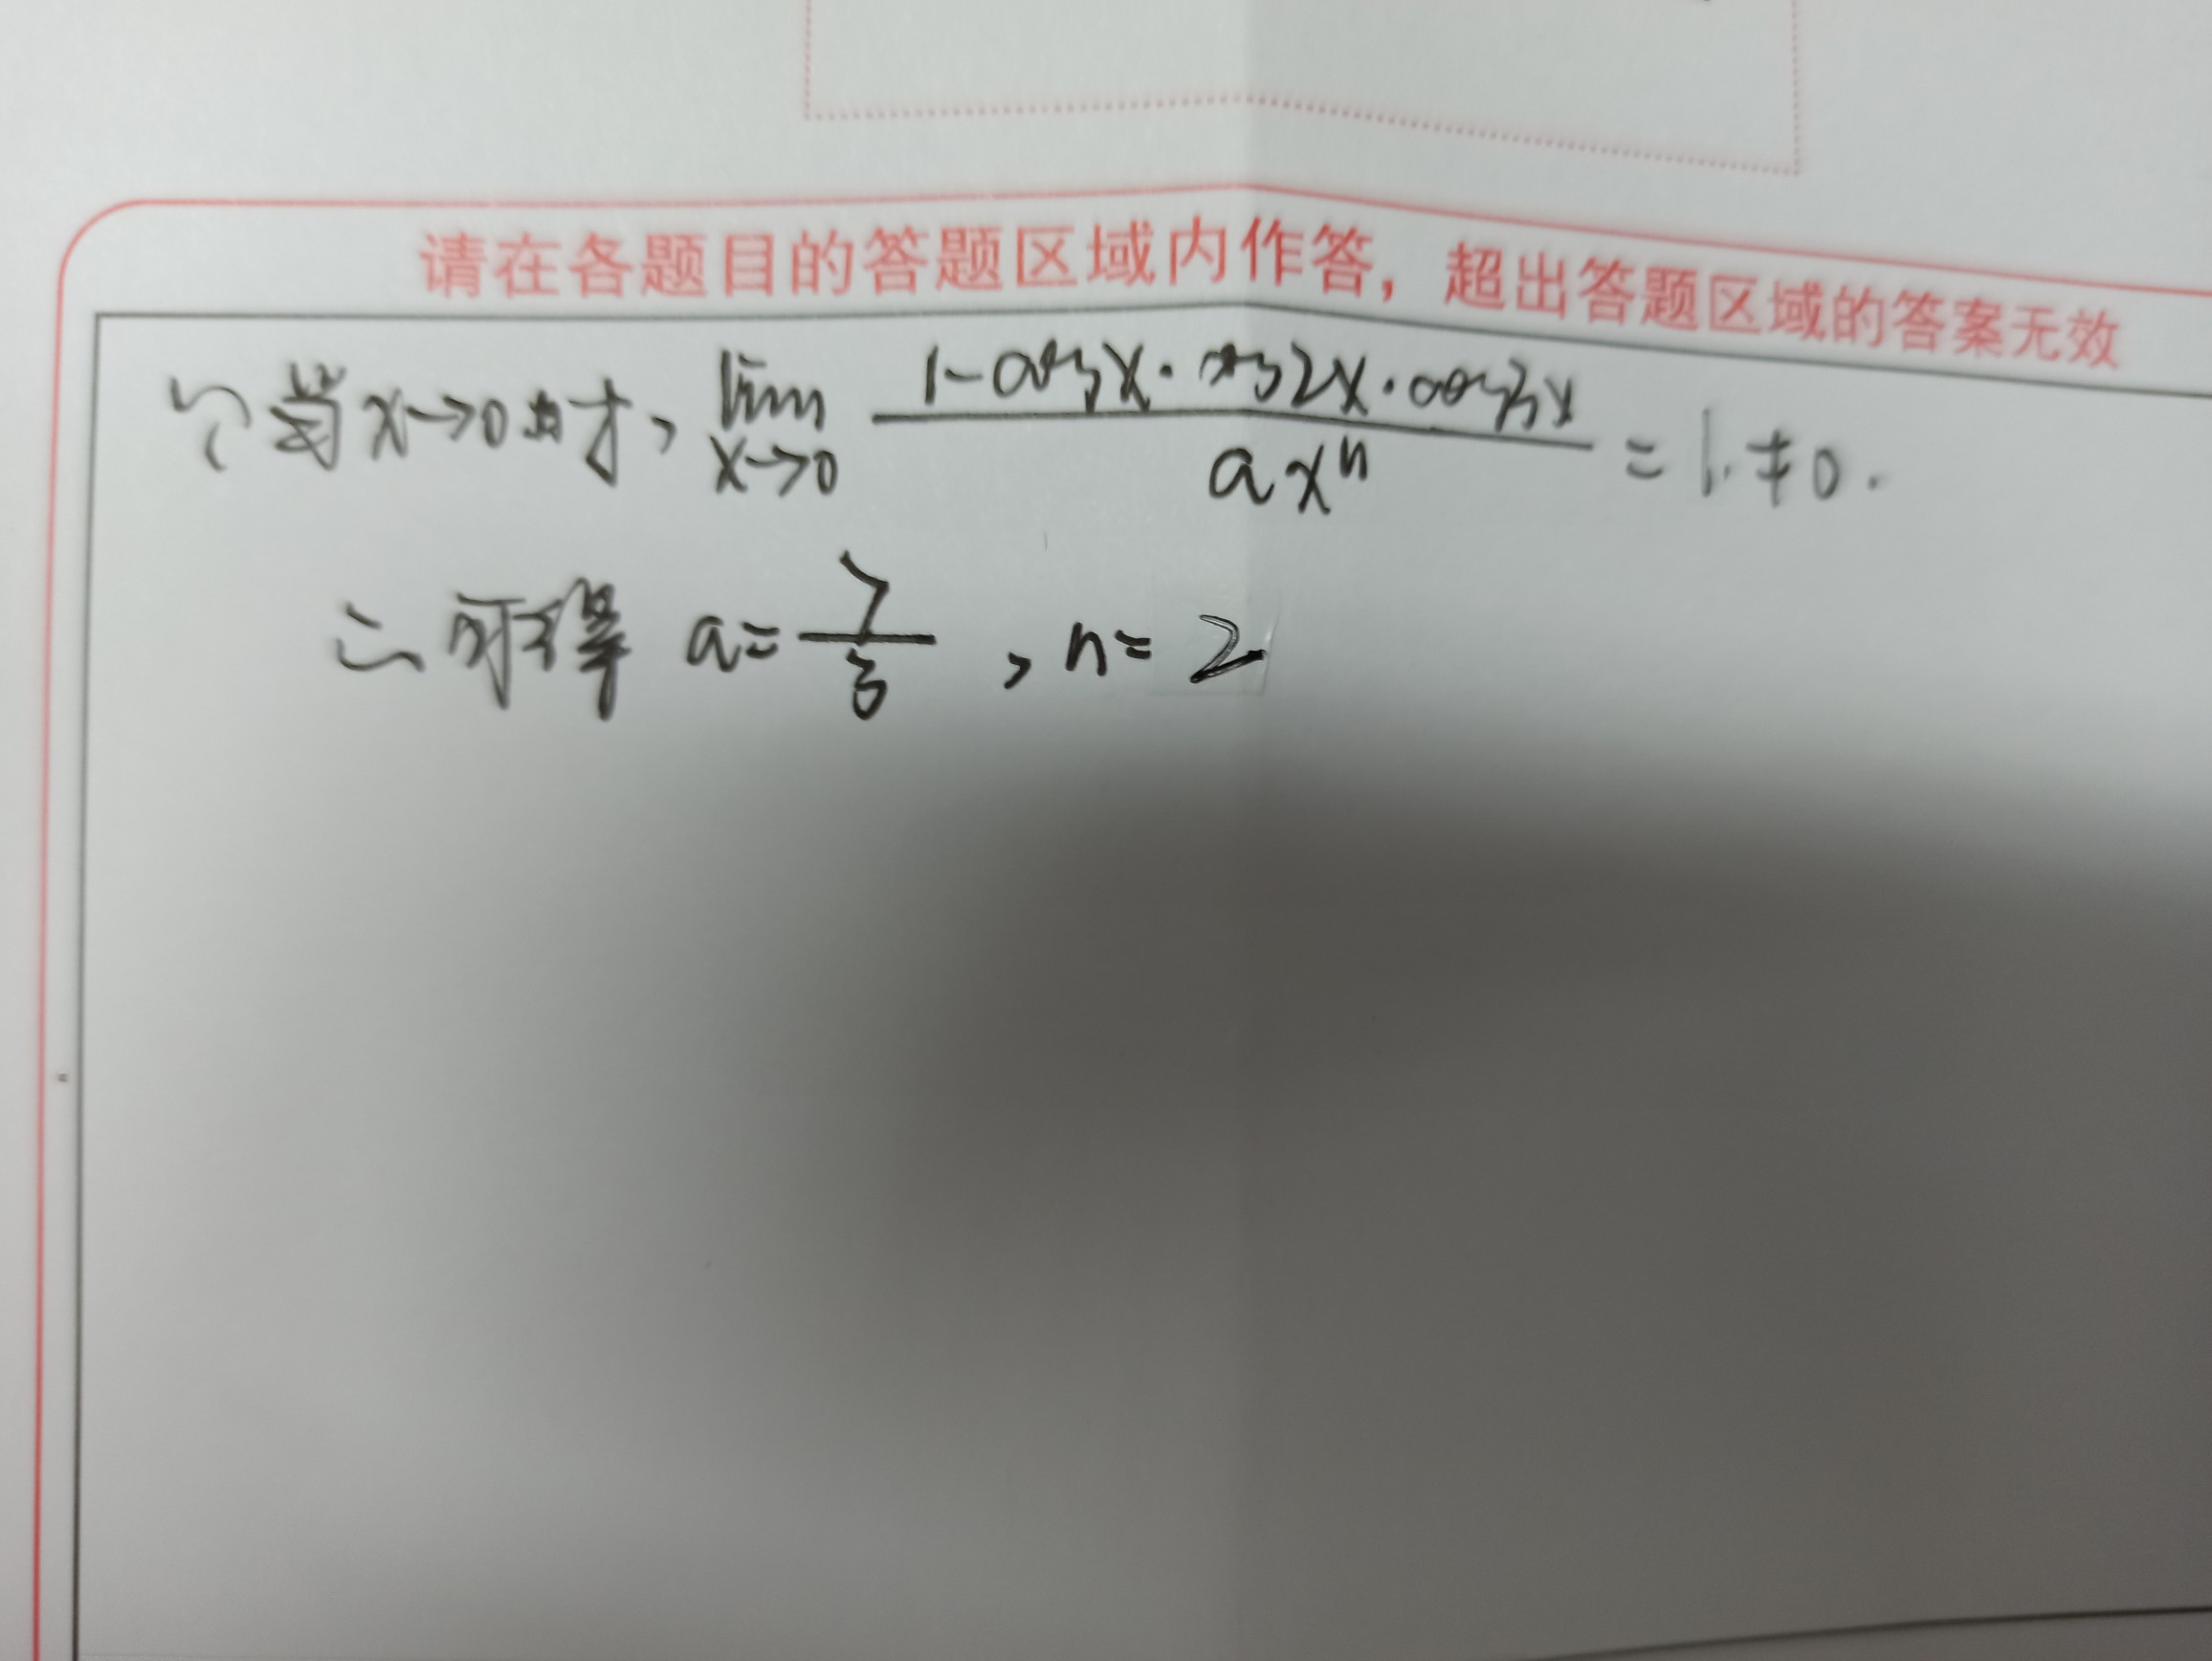 请在各题目的答题区域内作答，超出答题区域的答案无效
∵当x→0时，lim x→0 (1-cosx·cos2x·cos3x)/(ax^n) = 1.≠0.
∴可得 a=7/3，n=2